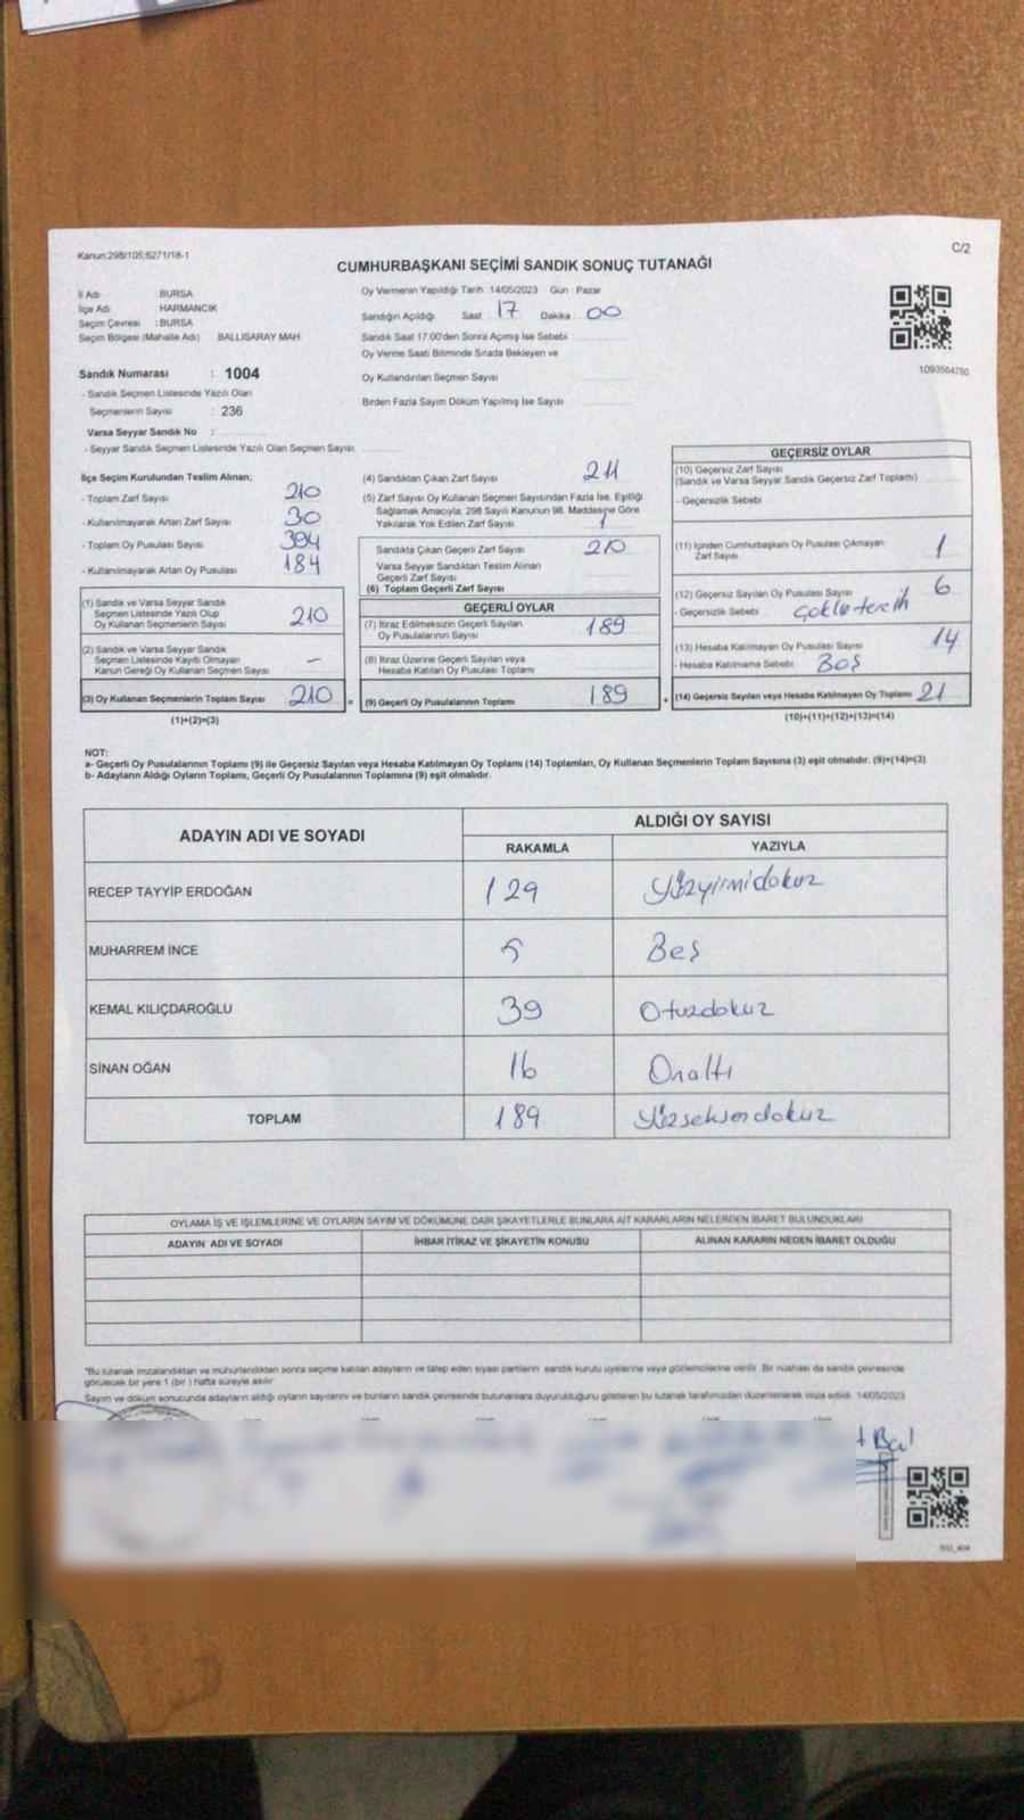 Kanun:298/105;6271/18-1
C/2
CUMHURBAŞKANI SEÇİMİ SANDIK SONUÇ TUTANAĞI
İl Adı BURSA
İlçe Adı HARMANCIK
Seçim Çevresi : BURSA
Seçim Bölgesi (Mahalle Adı) BALLISARAY MAH
Oy Vermenin Yapıldığı Tarih 14/05/2023 Gün : Pazar
Sandığın Açıldığı Saat 17 Dakika 00
Sandık Saat 17:00'den Sonra Açılmış İse Sebebi
Oy Verme Saati Bitiminde Sırada Bekleyen ve
Oy Kullandırılan Seçmen Sayısı
Birden Fazla Sayım Döküm Yapılmış İse Sayısı
1093504780
Sandık Numarası : 1004
- Sandık Seçmen Listesinde Yazılı Olan
Seçmenlerin Sayısı : 236
Varsa Seyyar Sandık No :
- Seyyar Sandık Seçmen Listesinde Yazılı Olan Seçmen Sayısı
İlçe Seçim Kurulundan Teslim Alınan;
- Toplam Zarf Sayısı 210
- Kullanılmayarak Artan Zarf Sayısı 30
- Toplam Oy Pusulası Sayısı 394
- Kullanılmayarak Artan Oy Pusulası 184
(1) Sandık ve Varsa Seyyar Sandık
Seçmen Listesinde Yazılı Olup
Oy Kullanan Seçmenlerin Sayısı 210
(2) Sandık ve Varsa Seyyar Sandık
Seçmen Listesinde Kayıtlı Olmayan
Kanun Gereği Oy Kullanan Seçmen Sayısı -
(3) Oy Kullanan Seçmenlerin Toplam Sayısı 210 =
(1)+(2)=(3)
(4) Sandıktan Çıkan Zarf Sayısı 211
(5) Zarf Sayısı Oy Kullanan Seçmen Sayısından Fazla İse, Eşitliği
Sağlamak Amacıyla, 298 Sayılı Kanunun 98. Maddesine Göre
Yakılarak Yok Edilen Zarf Sayısı 1
Sandıkta Çıkan Geçerli Zarf Sayısı 210
Varsa Seyyar Sandıktan Teslim Alınan
Geçerli Zarf Sayısı
(6) Toplam Geçerli Zarf Sayısı
GEÇERLİ OYLAR
(7) İtiraz Edilmeksizin Geçerli Sayılan
Oy Pusulalarının Sayısı 189
(8) İtiraz Üzerine Geçerli Sayılan veya
Hesaba Katılan Oy Pusulası Toplamı
(9) Geçerli Oy Pusulalarının Toplamı 189 +
GEÇERSİZ OYLAR
(10) Geçersiz Zarf Sayısı
(Sandık ve Varsa Seyyar Sandık Geçersiz Zarf Toplamı)
- Geçersizlik Sebebi
(11) İçinden Cumhurbaşkanı Oy Pusulası Çıkmayan
Zarf Sayısı 1
(12) Geçersiz Sayılan Oy Pusulası Sayısı 6
- Geçersizlik Sebebi Çoklu tercih
(13) Hesaba Katılmayan Oy Pusulası Sayısı 14
- Hesaba Katılmama Sebebi Boş
(14) Geçersiz Sayılan veya Hesaba Katılmayan Oy Toplamı 21
(10)+(11)+(12)+(13)=(14)
NOT:
a- Geçerli Oy Pusulalarının Toplamı (9) ile Geçersiz Sayılan veya Hesaba Katılmayan Oy Toplamı (14) Toplamları, Oy Kullanan Seçmenlerin Toplam Sayısına (3) eşit olmalıdır. (9)+(14)=(3)
b- Adayların Aldığı Oyların Toplamı, Geçerli Oy Pusulalarının Toplamına (9) eşit olmalıdır.
ADAYIN ADI VE SOYADI ALDIĞI OY SAYISI
RAKAMLA YAZIYLA
RECEP TAYYİP ERDOĞAN 129 Yüzyirmidokuz
MUHARREM İNCE 5 Beş
KEMAL KILIÇDAROĞLU 39 Otuzdokuz
SİNAN OĞAN 16 Onaltı
TOPLAM 189 Yüzseksendokuz
OYLAMA İŞ VE İŞLEMLERİNE VE OYLARIN SAYIM VE DÖKÜMÜNE DAİR ŞİKAYETLERLE BUNLARA AİT KARARLARIN NELERDEN İBARET BULUNDUKLARI
ADAYIN ADI VE SOYADI İHBAR İTİRAZ VE ŞİKAYETİN KONUSU ALINAN KARARIN NEDEN İBARET OLDUĞU
*Bu tutanak imzalandıktan ve mühürlendikten sonra seçime katılan adayların ve talep eden siyasi partilerin sandık kurulu üyelerine veya gözlemcilerine verilir. Bir nüshası da sandık çevresinde
görülecek bir yere 1 (bir) hafta süreyle asılır
Sayım ve döküm sonucunda adayların aldığı oyların sayılarını ve bunların sandık çevresinde bulunanlara duyurulduğunu gösteren bu tutanak tarafımızdan düzenlenerek imza edildi. 14/05/2023
Bal